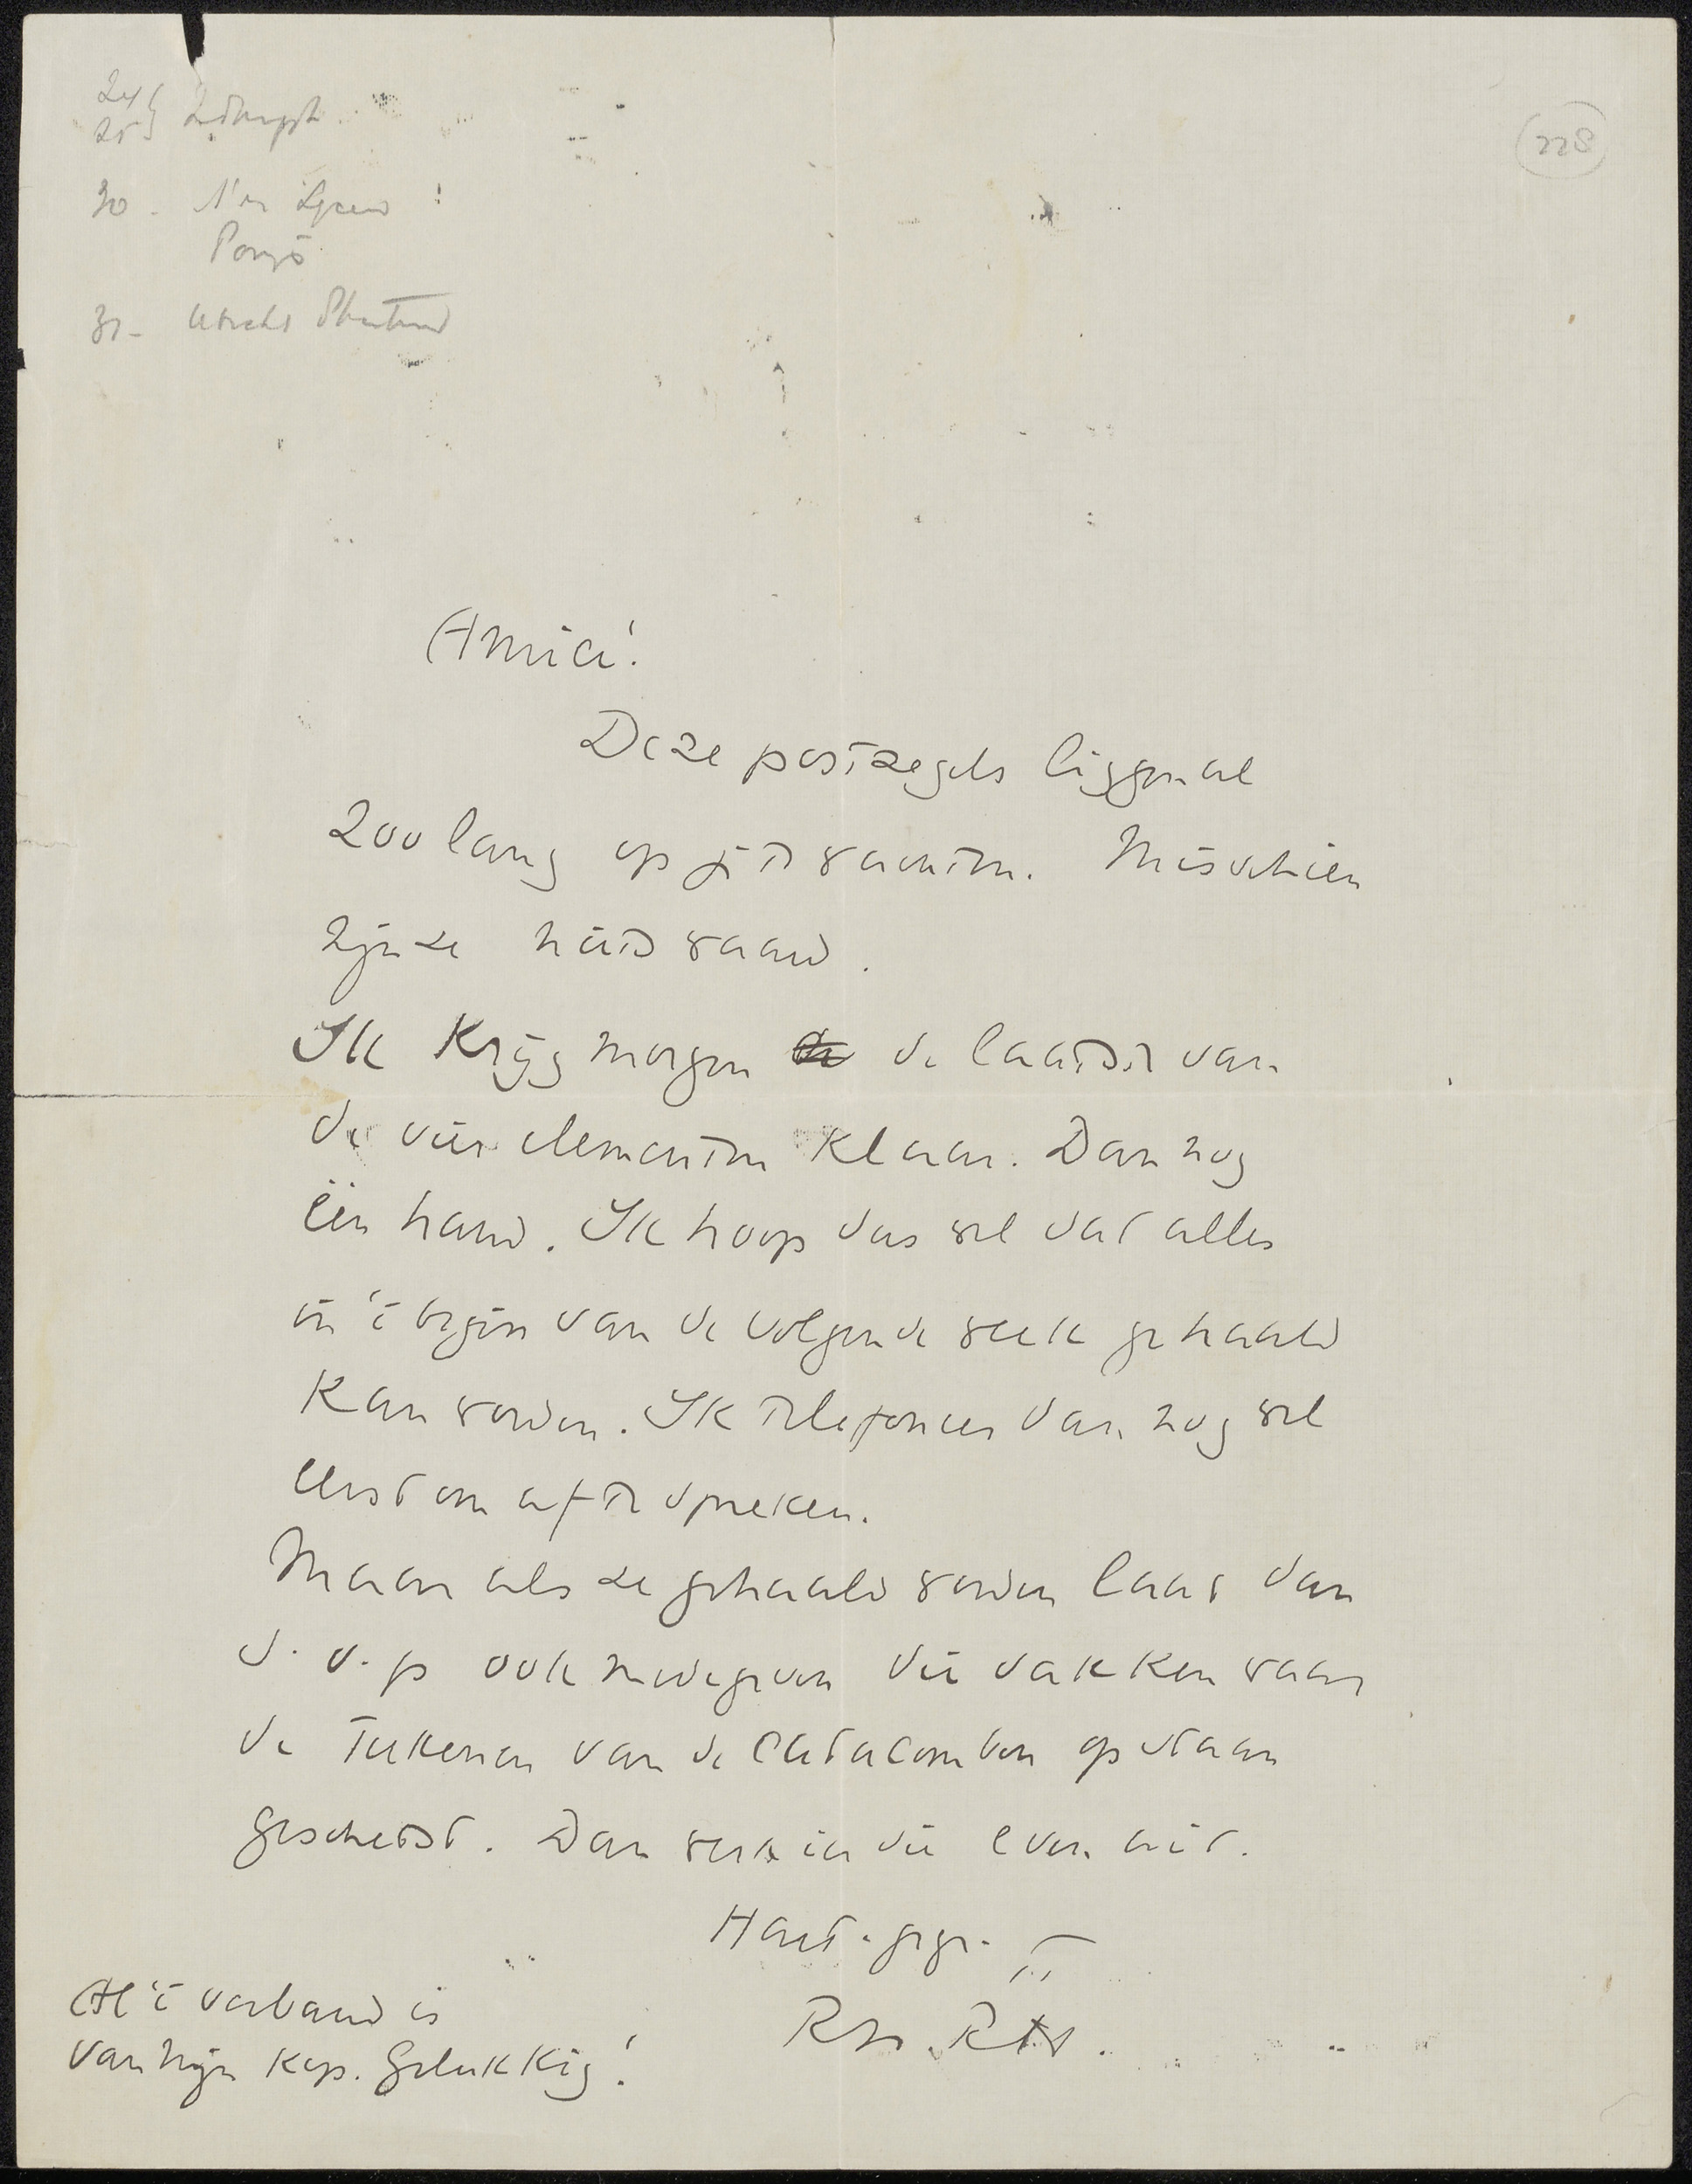 24
25
30 -
31 - Utrecht
228
Amici!
Deze postzegels liggen al
zoo lang op je te wachten. Misschien
zijn ze niets waard.
Ik krijg morgen de laatste van
de vier elementen klaar. Dan nog
één hand. Ik hoop dus wel dat alles
in 't begin van de volgende week gehaald
kan worden. Ik telefoneer dan nog wel
eerst om af te spreken.
Maar als ze gehaald worden laat dan
s.v.p ook medegeven die vakken waar
de teekenen van de catacomben op staan
geschetst. Dan werk ik die even uit.
Hart. grgr.
RN. RH.
Al 't verband is
van mijn kop. Gelukkig!